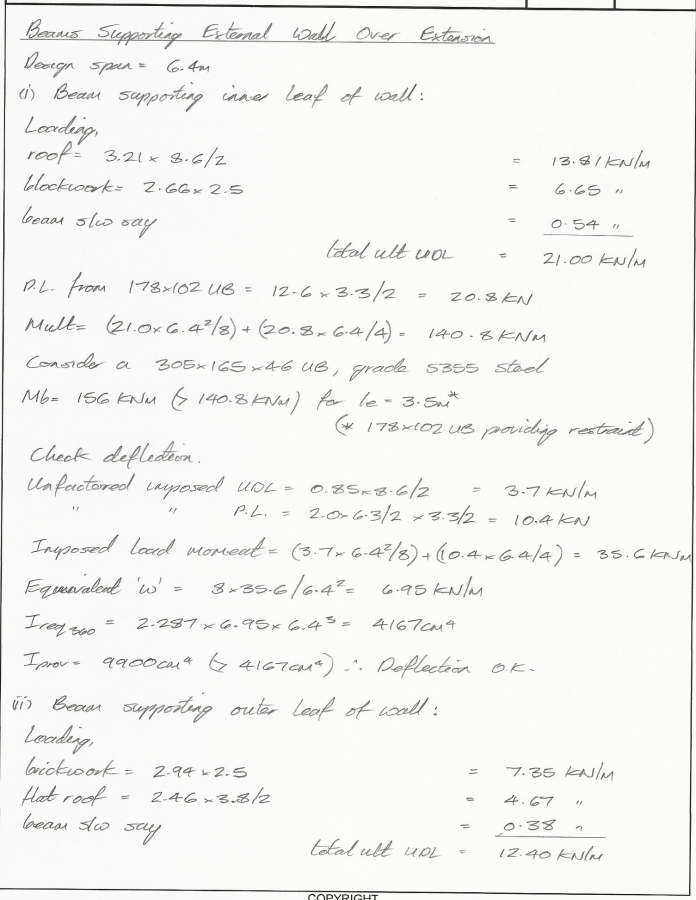 Beams Supporting External Wall Over Extension
Design span = 6.4m
(i) Beam supporting inner leaf of wall:
Loading,
roof = 3.21 x 8.6/2 = 13.81 KN/M
blockwork = 2.66 x 2.5 = 6.65 "
beam s/w say = 0.54 "
total ult UDL = 21.00 KN/M
P.L. from 178x102 UB = 12.6 x 3.3/2 = 20.8 KN
Mult = (21.0 x 6.4²/8) + (20.8 x 6.4/4) = 140.8 KNM
Consider a 305x165x46 UB, grade S355 steel
Mb = 156 KNM (> 140.8 KNM) for le = 3.5m*
(* 178x102 UB providing restraint)
Check deflection.
Unfactored imposed UDL = 0.85 x 8.6/2 = 3.7 KN/M
" " P.L. = 2.0 x 6.3/2 x 3.3/2 = 10.4 KN
Imposed load moment = (3.7 x 6.4²/8) + (10.4 x 6.4/4) = 35.6 KNM
Equivalent 'w' = 8 x 35.6/6.4² = 6.95 KN/M
Ireq 360 = 2.287 x 6.95 x 6.4³ = 4167cm⁴
Iprov = 9900cm⁴ (> 4167cm⁴) ∴ Deflection O.K.
(ii) Beam supporting outer leaf of wall:
Loading,
brickwork = 2.94 x 2.5 = 7.35 KN/M
flat roof = 2.46 x 3.8/2 = 4.67 "
beam s/w say = 0.38 "
total ult UDL = 12.40 KN/M
COPYRIGHT